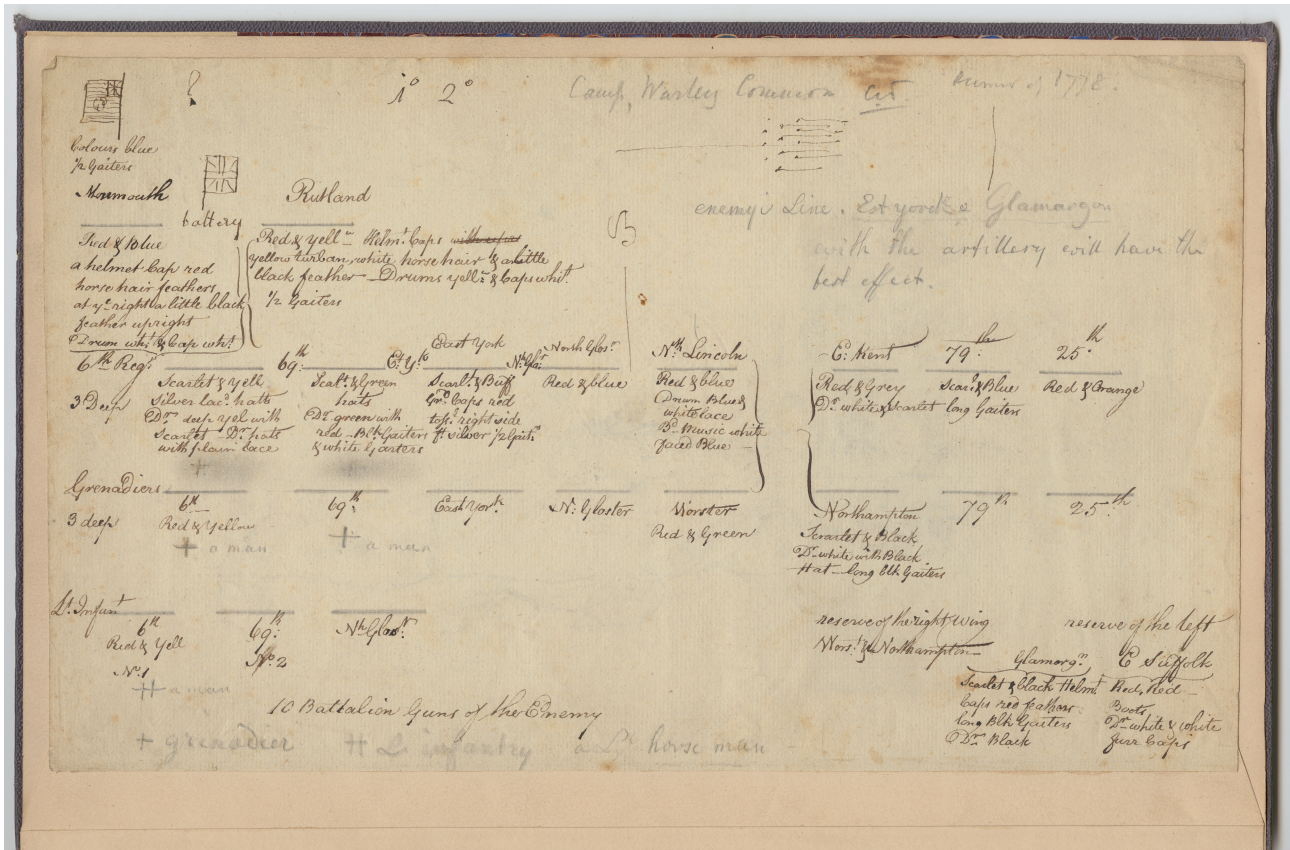 ? 1° 2° Camp, Warley Common of 1778.
Colours blue
1/2 Gaiters
Monmouth Rutland
battery
enemy's Line. Est york & Glamorgan
with the artillery will have the
best effect.
Red & blue
a helmet Cap red
horse hair feathers
at ye right a little black
feather upright
Drum wht. & Cap wht.
Red & Yell Helmt. Caps
yellow turban, white horse hair & a little
black feather - Drums yellw. & Caps whit.
1/2 Gaiters
B
6th Regt. 69th. Et. Yk. East York Nth Glosr. North Glosr. Nth. Lincoln E: Kent 79th: 25th.
3 Deep
Scarlet & Yell
Silver lacd. hatts
Dr. deep yel with
Scarlet - Dr. hats
with plain lace
+
Scalt. & Green
hats
Dr. green with
red - Blk Gaiters
& white Garters
+
Scarlt. & Buff
Grd. Caps red
right side
silver 1/2 Gait
Red & blue
Red & blue
Drum Blue &
white lace
Bd. Music white
faced Blue -
Red & Grey
Dr. white & scarlet
Scart. & Blue
long Gaiters
Red & Orange
Grenadiers
3 deep
6th 69th. East York N: Gloster Worster Northampton 79th 25th.
Red & Yellow
+ a man
+ a man
Red & Green
Scarlet & Black
Dr. white with Black
Hat - long blk Gaiters
Lt. Infant
6th 69th. Nth Glosr.
Red & Yell
No. 1 No. 2
++ a man
reserve of the right Wing
Worst. & Northampton
reserve of the left
Glamorgn E Suffolk
Scarlet & black Helmt
Caps red feathers
long Blk Gaiters
Dr. Black
Red, Red -
Boots
Dr. white & white
furr Caps
10 Battalion Guns of the Enemy
+ grenadier ++ Lt infantry a Lt horse man -